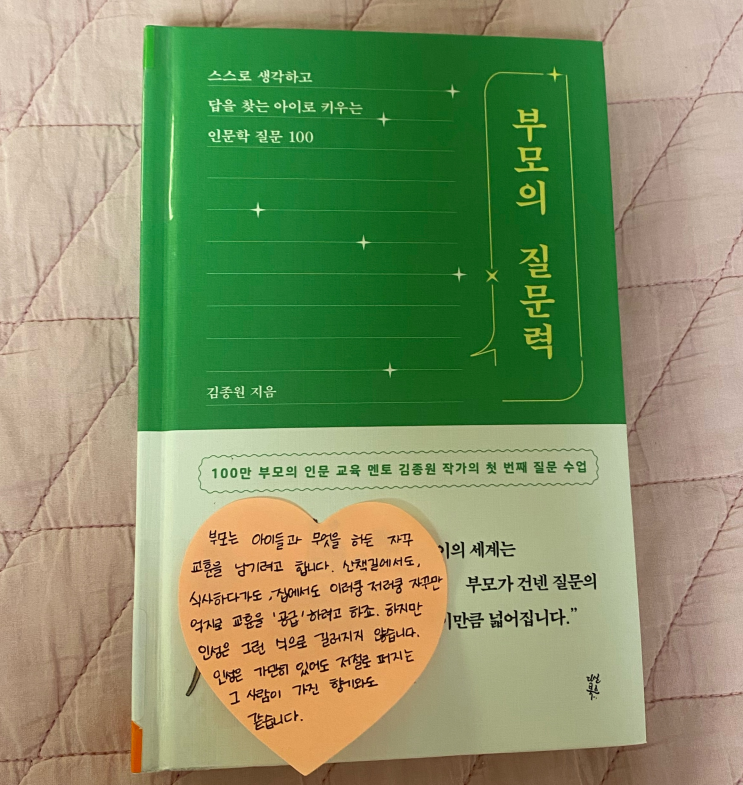 스스로 생각하고
답을 찾는 아이로 키우는
인문학 질문 100
부모의 질문력
김종원 지음
100만 부모의 인문 교육 멘토 김종원 작가의 첫 번째 질문 수업
이의 세계는
부모가 건넨 질문의
이만큼 넓어집니다.”
부모는 아이들과 무엇을 하든 자꾸
교훈을 남기려고 합니다. 산책길에서도,
식사하다가도, 집에서도 이러쿵 저러쿵 자꾸만
억지로 교훈을 '공급'하려고 하죠. 하지만
인성은 그런 식으로 길러지지 않습니다.
인성은 가만히 있어도 저절로 퍼지는
그 사람이 가진 향기와도
같습니다.